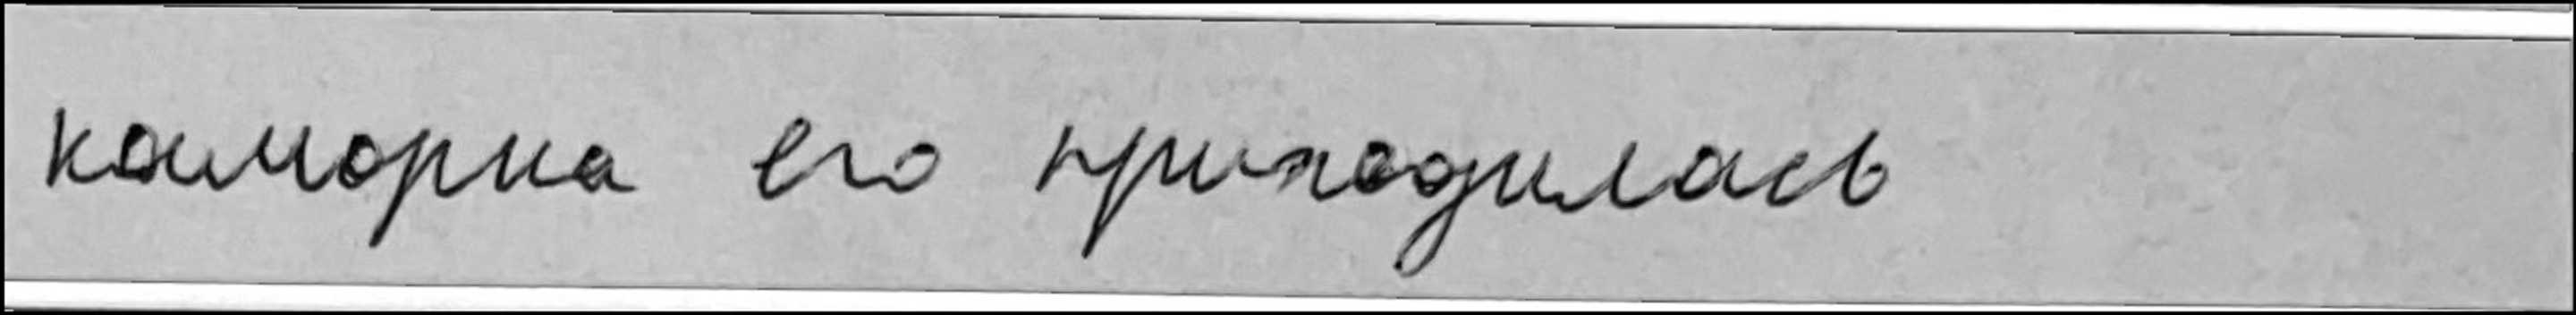 каморка его приходилась